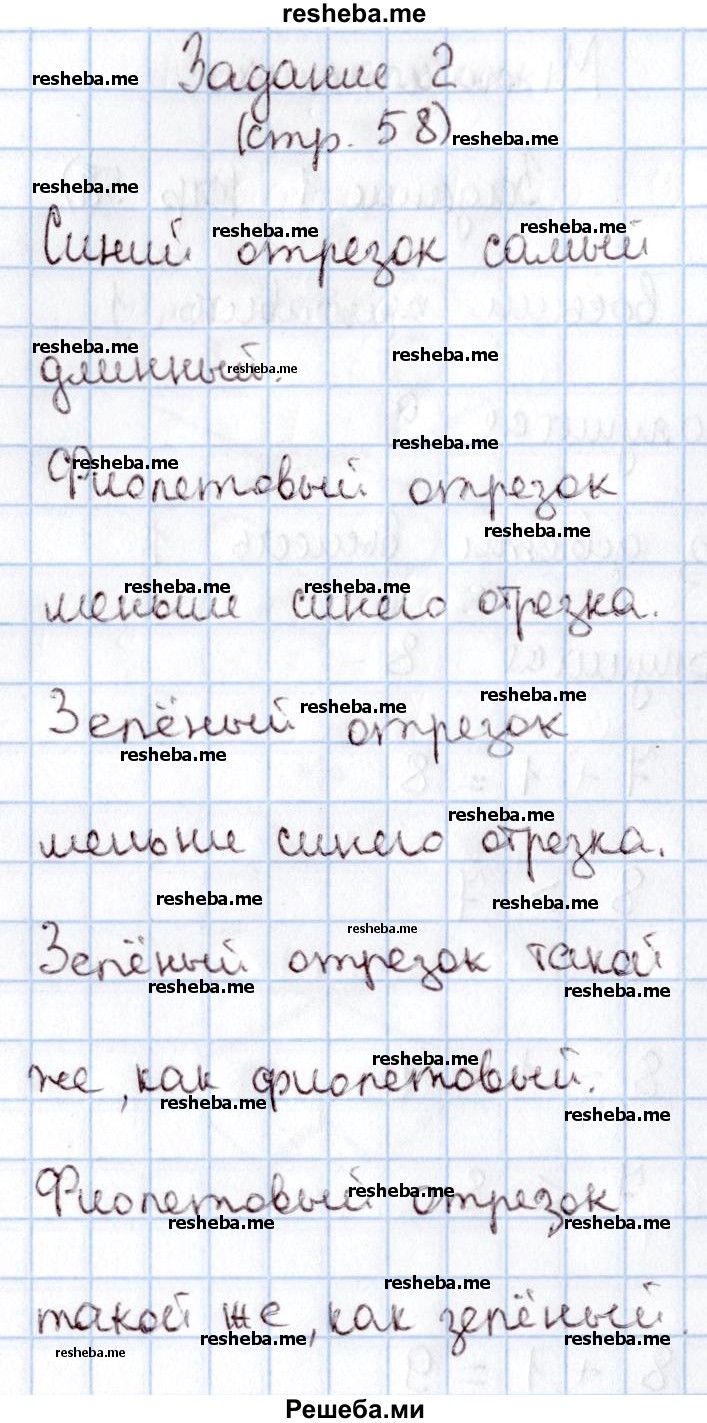 resheba.me
Задание 2
resheba.me
(стр. 58)
resheba.me
resheba.me
Синий отрезок самый
resheba.me resheba.me
resheba.me
длинный.
resheba.me resheba.me
resheba.me
resheba.me
Фиолетовый отрезок
resheba.me
resheba.me resheba.me
меньше синего отрезка.
resheba.me resheba.me
Зелёный отрезок
resheba.me
resheba.me
меньше синего отрезка.
resheba.me resheba.me
resheba.me
Зелёный отрезок такой
resheba.me resheba.me
resheba.me
же, как фиолетовый.
resheba.me resheba.me
resheba.me
Фиолетовый отрезок
resheba.me resheba.me
resheba.me
такой же, как зелёный.
resheba.me resheba.me
resheba.me
Решеба.ми